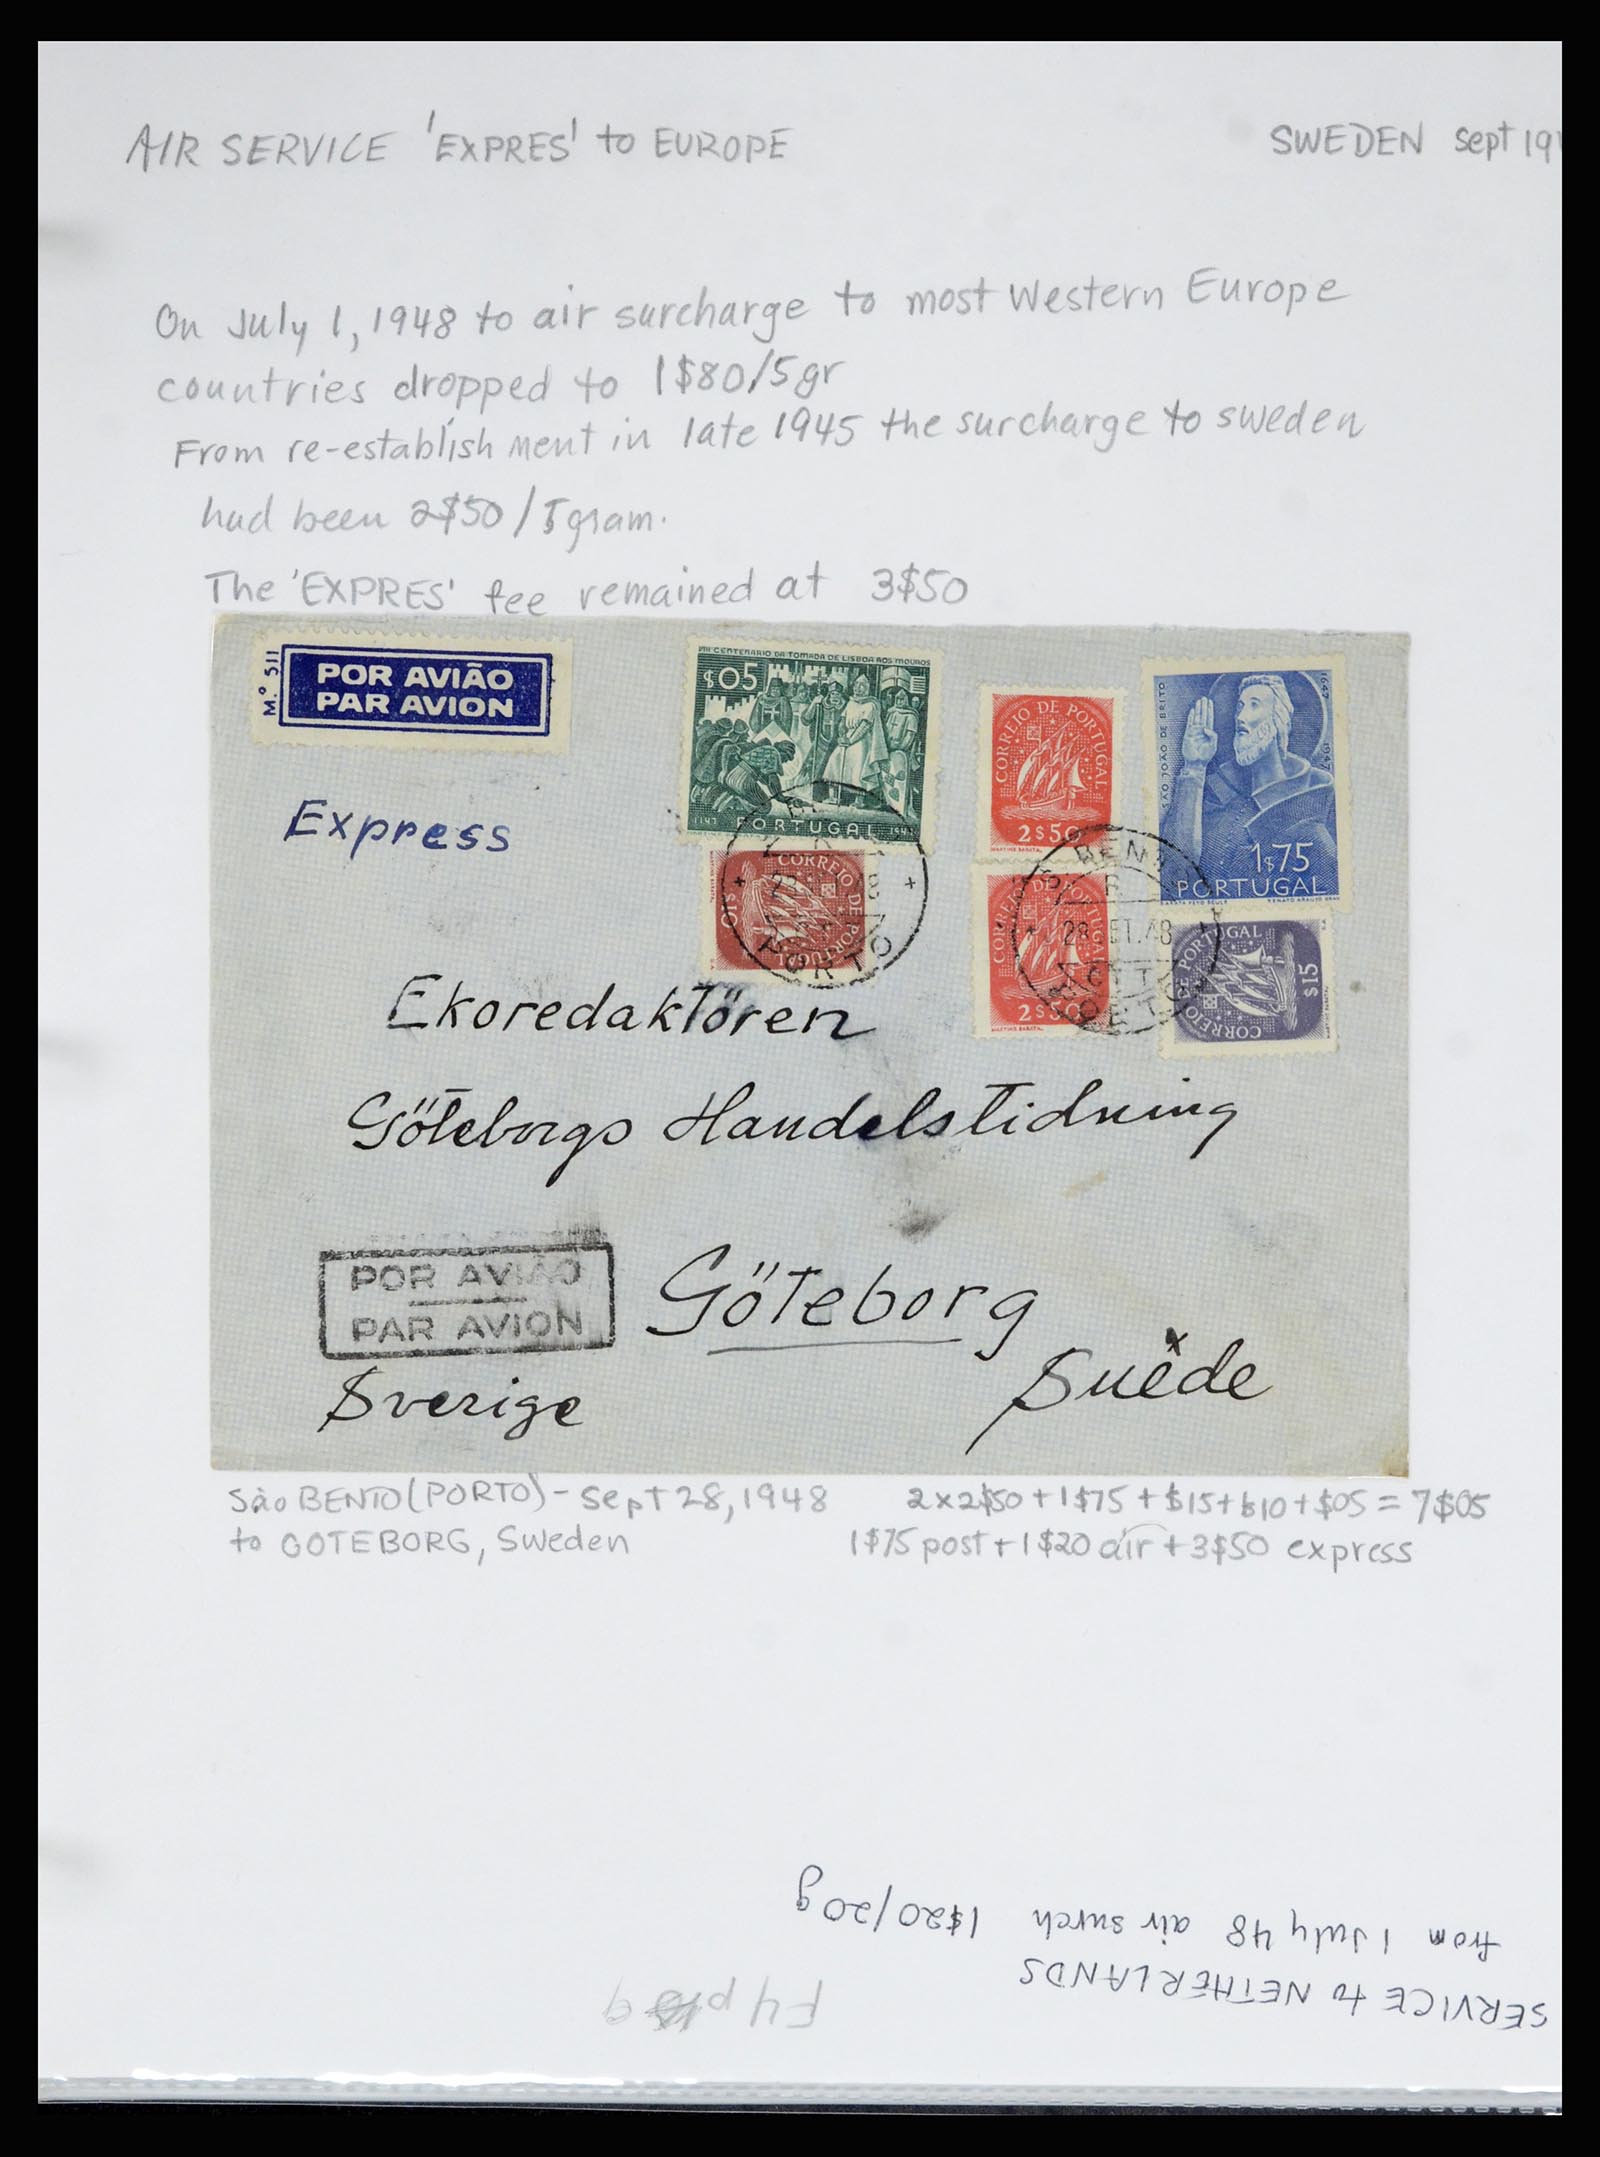 AIR SERVICE 'EXPRES' to EUROPE
SWEDEN Sept 19
On July 1, 1948 to air surcharge to most Western Europe
countries dropped to 1$80/5gr
From re-establishment in late 1945 the surcharge to sweden
had been 2$50/5gram.
The 'EXPRES' fee remained at 3$50
M.º 511
POR AVIÃO
PAR AVION
VIII CENTENARIO DA TOMADA DE LISBOA AOS MOUROS
$05
1147 PORTUGAL 1947
CORREIO DE PORTUGAL
2$50
MARTINS BARATA
SÃO JOÃO DE BRITO
1647 1947
1$75
PORTUGAL
Express
CORREIO DE PORTUGAL
$10
PORTO
CORREIO DE PORTUGAL
2$50
MARTINS BARATA
S. BENTO
28 SET.48
PORTO
CORREIO DE PORTUGAL
$15
Ekoredaktören
Göteborgs Handelstidning
POR AVIÃO
PAR AVION
Göteborg
Suède
Sverige
São BENTO (PORTO) - Sept 28, 1948
to GOTEBORG, Sweden
2x2$50+1$75+$15+$10+$05=7$05
1$75 post+1$20 air+3$50 express
SERVICE to NETHERLANDS
from 1 July 48 air surch 1$20/20g
F4 p 9